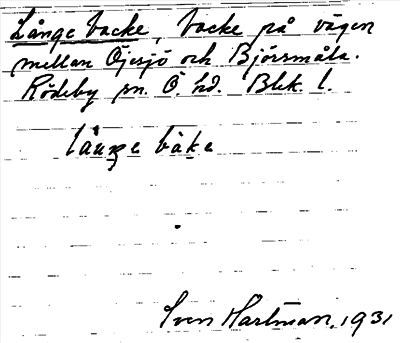 Långe backe, backe på vägen
mellan Öjesjö och Björsmåla.
Rödeby sn. Ö. hd. Blek. l.
bake
Sven Hartman, 1931